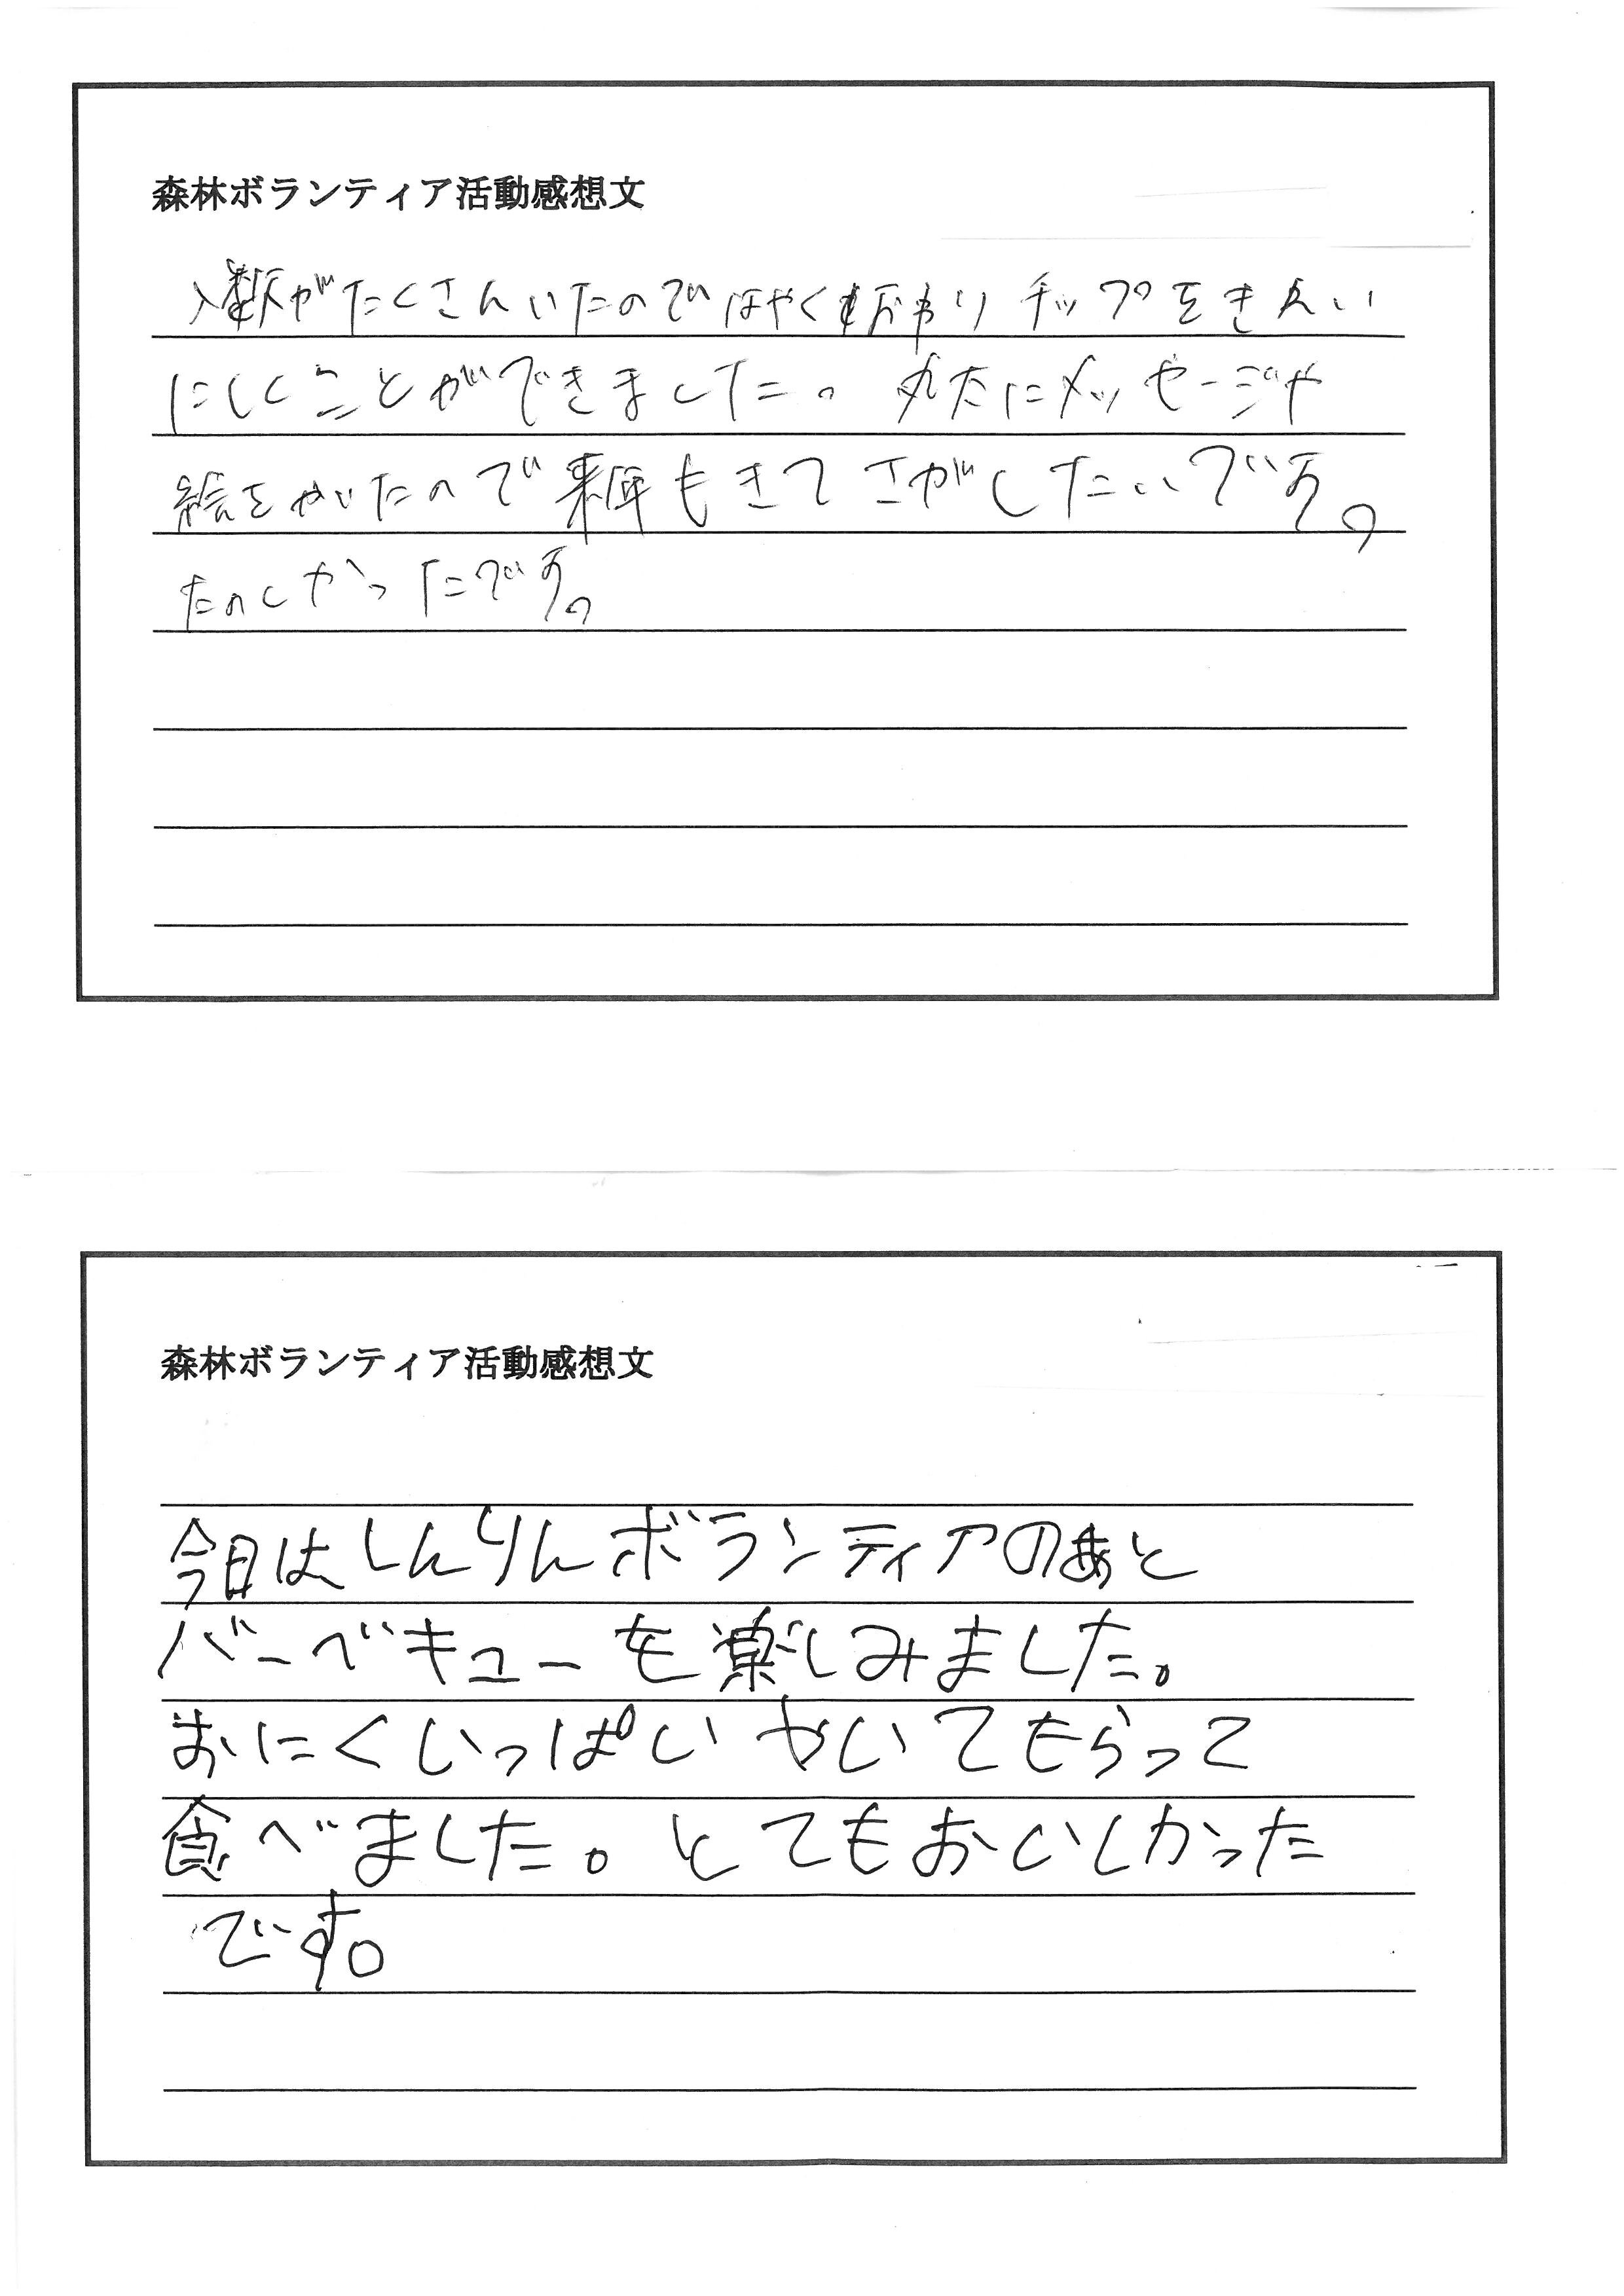 森林ボランティア活動感想文
人数がたくさんいたのではやくおわりチップをきれい
にしくことができました。丸太にメッセージや
絵をかいたので来年もきてさがしたいです。
たのしかったです。
森林ボランティア活動感想文
今日はしんりんボランティアのあと
バーベキューを楽しみました。
おにくいっぱいやいてもらって
食べました。とてもおいしかった
です。